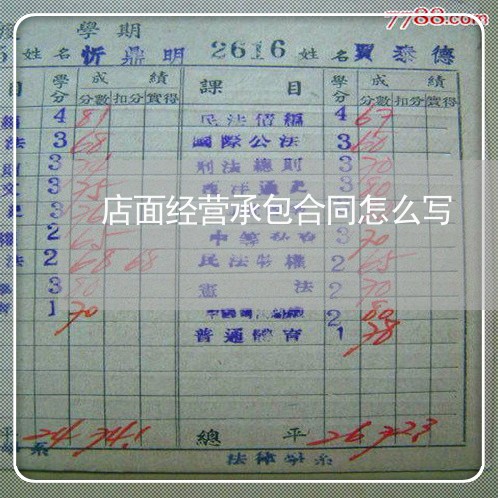 7788.com
學期
姓名 忻鼎明 2616 姓名 賈泰德
目 學分 成績 課目 學分 成績
分數 扣分 實得 分數 扣分 實得
4 81 民法債編 4 67
法 3 68 國際公法 3 60
3 刑法總則 3 70
3 75 3 80
店面经营承包合同怎么写
2 65 3 70
法 2 68 68 民法物權 2 65
3 80 憲法 2 70
1 70 2 80
普通體育 1 78
平 24 74.1 總平 26 72.3
法律學系